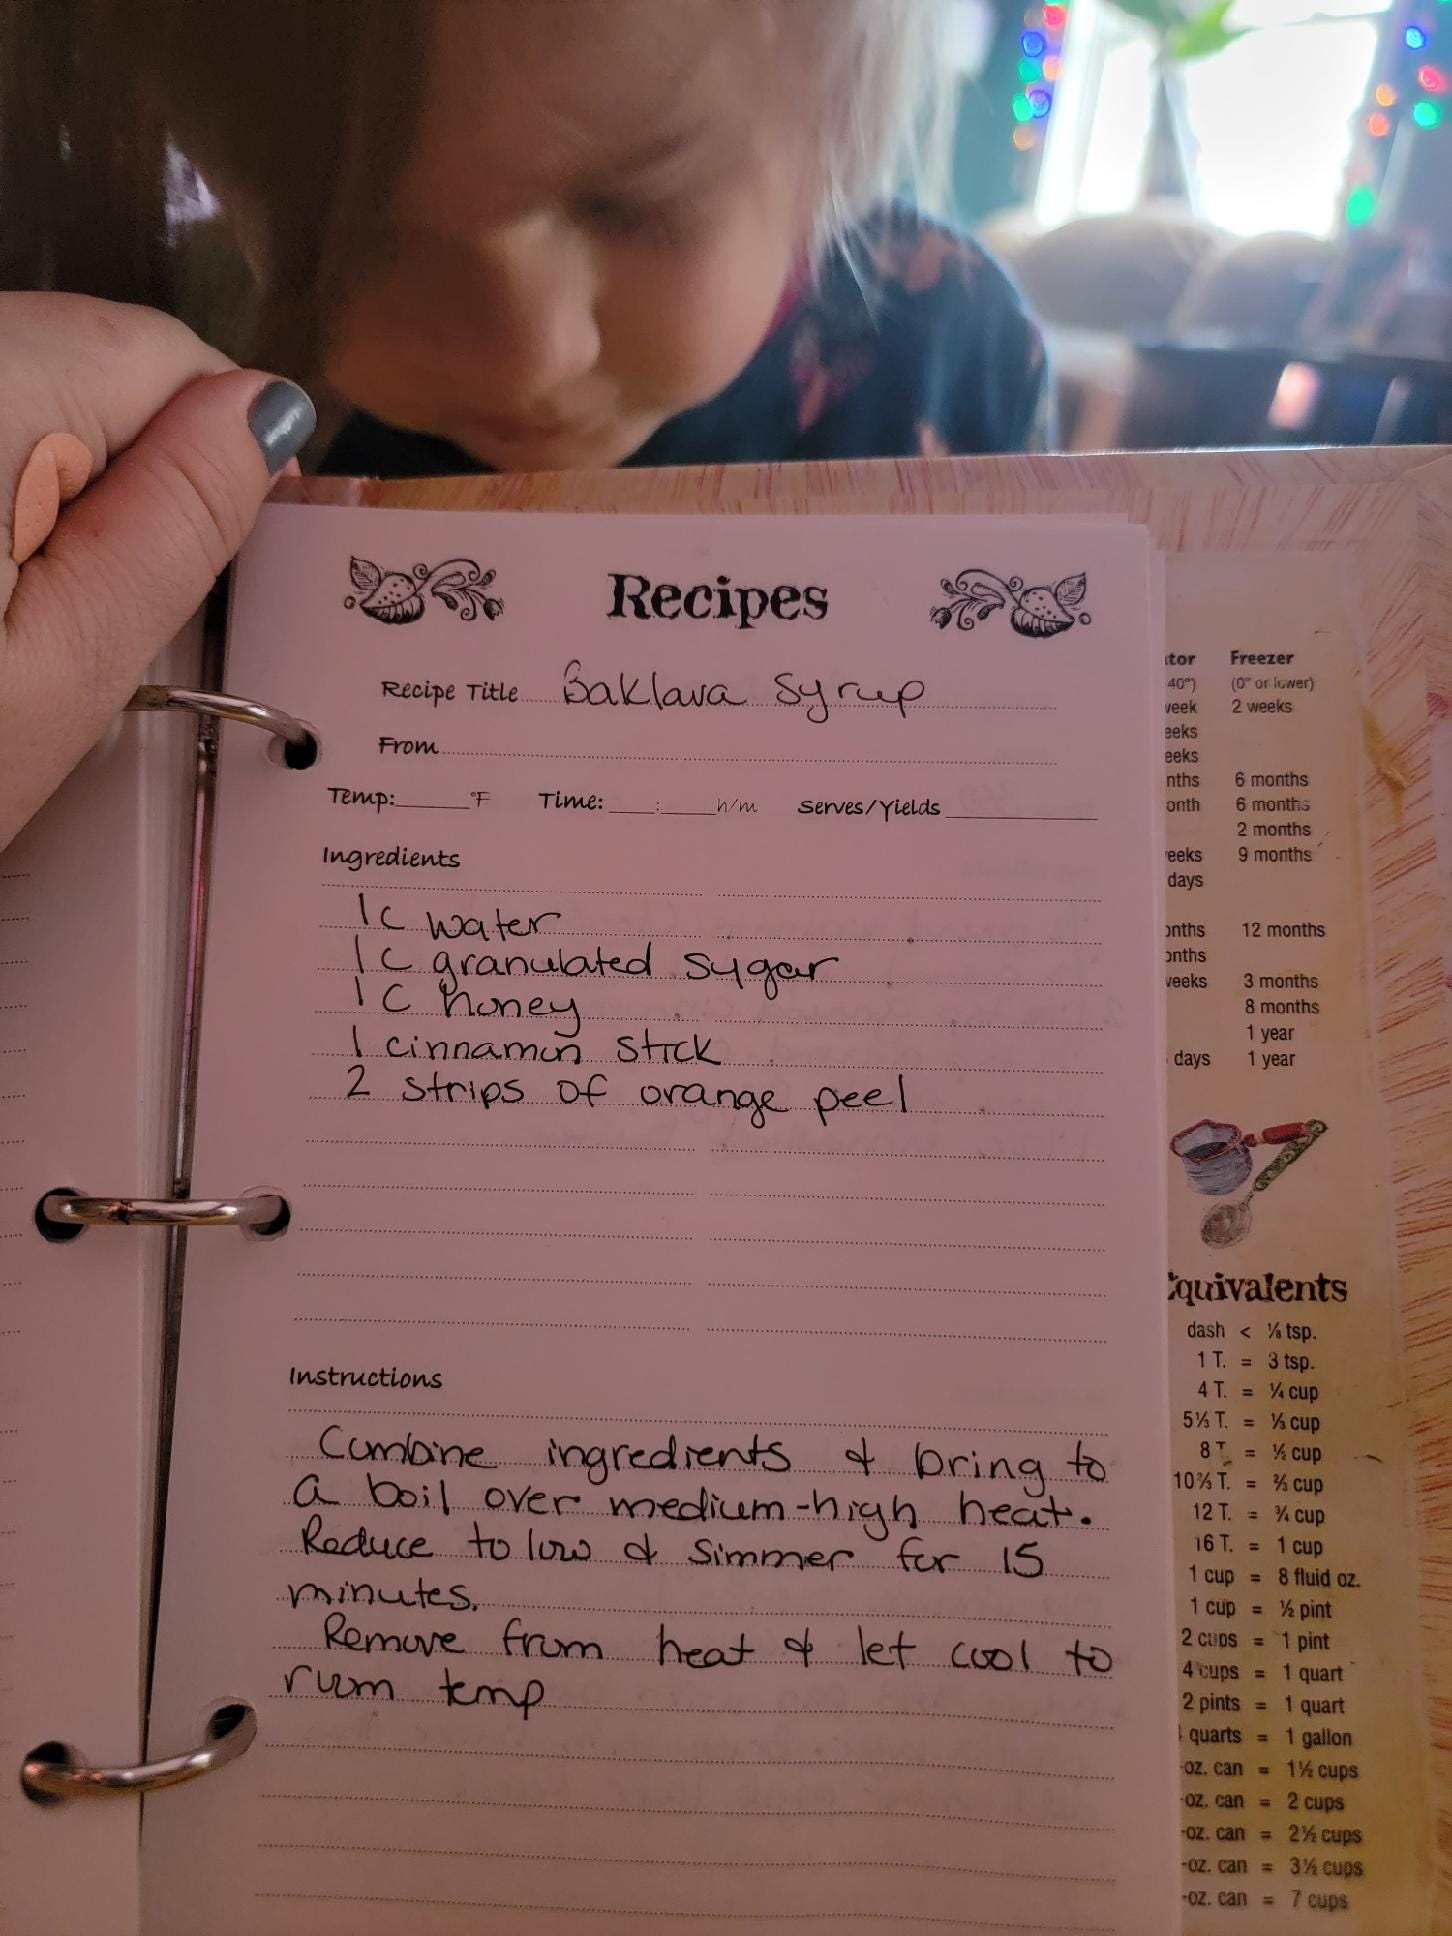 Recipes
Recipe Title Baklava Syrup
From
Temp: °F Time: : h/m Serves/Yields
Ingredients
1 c water
1 c granulated sugar
1 c honey
1 cinnamon stick
2 strips of orange peel
Instructions
Combine ingredients & bring to
a boil over medium-high heat.
Reduce to low & simmer for 15
minutes.
Remove from heat & let cool to
room temp
tor Freezer
40°) (0° or lower)
week 2 weeks
eeks
eeks
nths 6 months
onth 6 months
2 months
eeks 9 months
days
onths 12 months
onths
weeks 3 months
8 months
1 year
days 1 year
Equivalents
dash < ⅛ tsp.
1 T. = 3 tsp.
4 T. = ¼ cup
5⅓ T. = ⅓ cup
8 T. = ½ cup
10⅔ T. = ⅔ cup
12 T. = ¾ cup
16 T. = 1 cup
1 cup = 8 fluid oz.
1 cup = ½ pint
2 cups = 1 pint
4 cups = 1 quart
2 pints = 1 quart
quarts = 1 gallon
-oz. can = 1½ cups
-oz. can = 2 cups
-oz. can = 2½ cups
-oz. can = 3½ cups
-oz. can = 7 cups